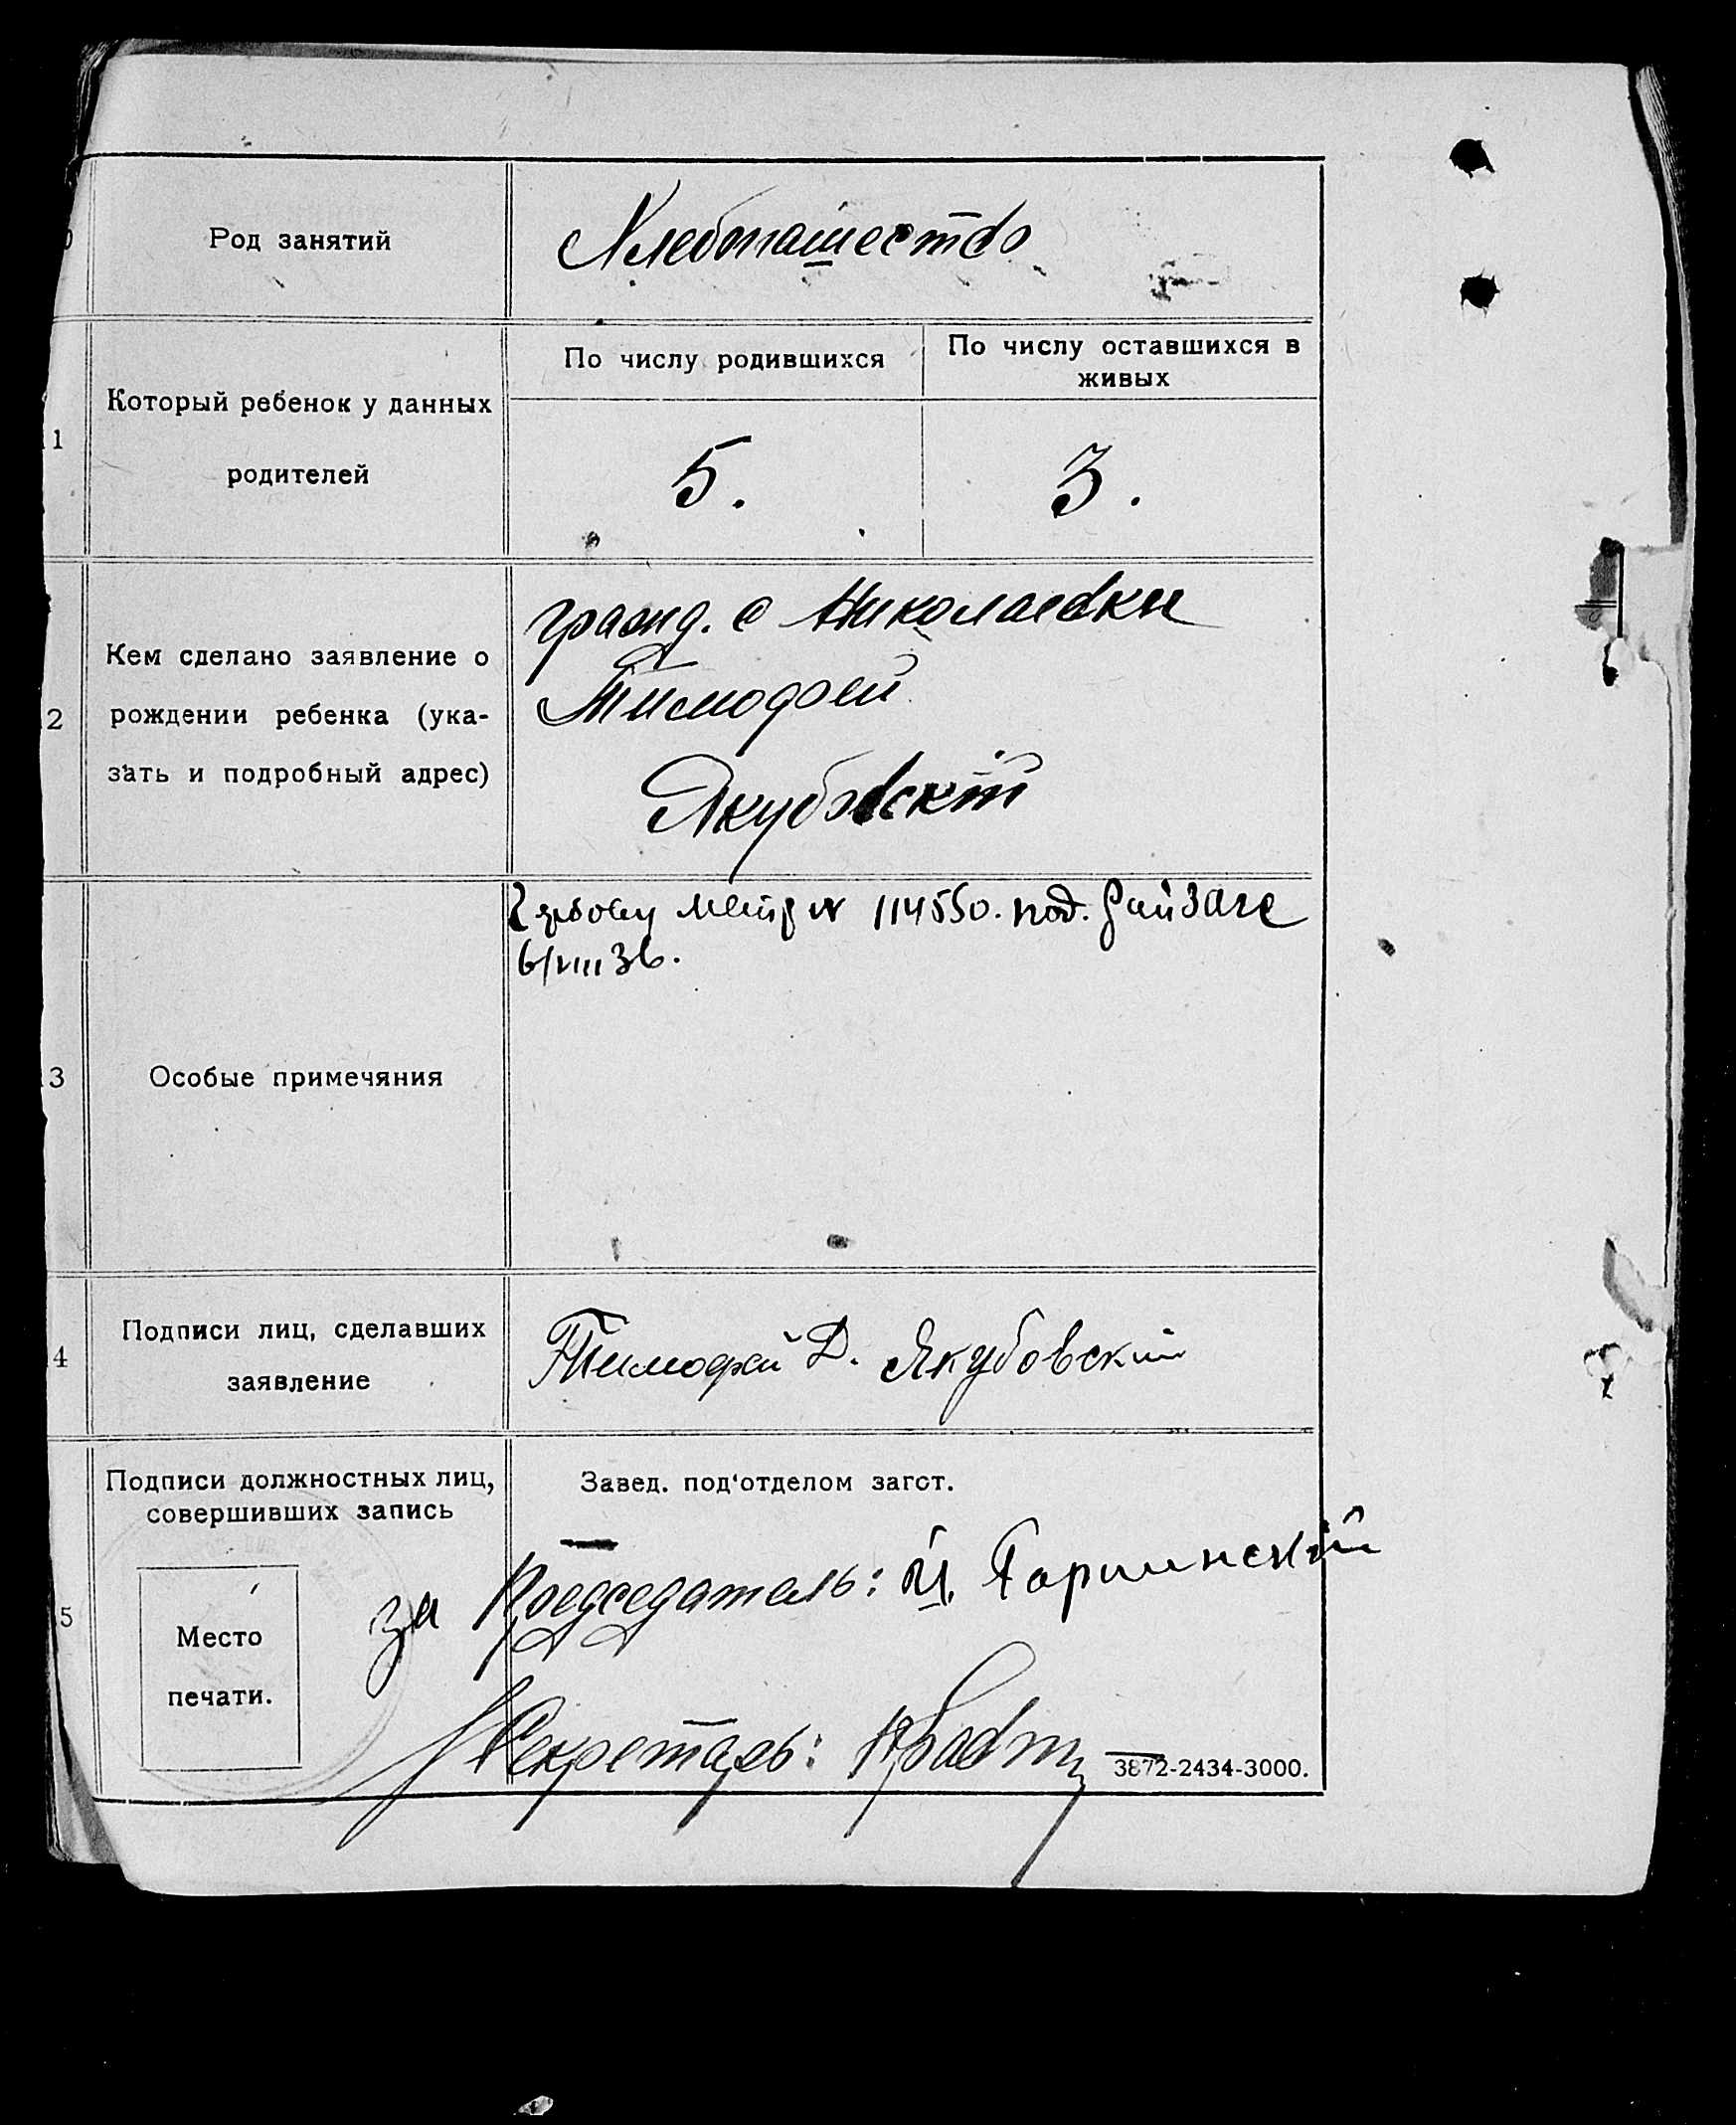 0
Род занятий
Хлебопашество
1
Который ребенок у данных
родителей
По числу родившихся
По числу оставшихся в
живых
5.
3.
2
Кем сделано заявление о
рождении ребенка (ука-
зать и подробный адрес)
гражд. с Николаевки
Тимофей
Якубовскій
3
Особые примечяния
метр № 114550. под. райзагс
6/VIII 36.
4
Подписи лиц, сделавших
заявление
Тимофей Д. Якубовский
5
Подписи должностных лиц,
совершивших запись
Завед. под‘отделом загст.
за Председатель: И.
Место
печати.
Секретарь:
3872-2434-3000.